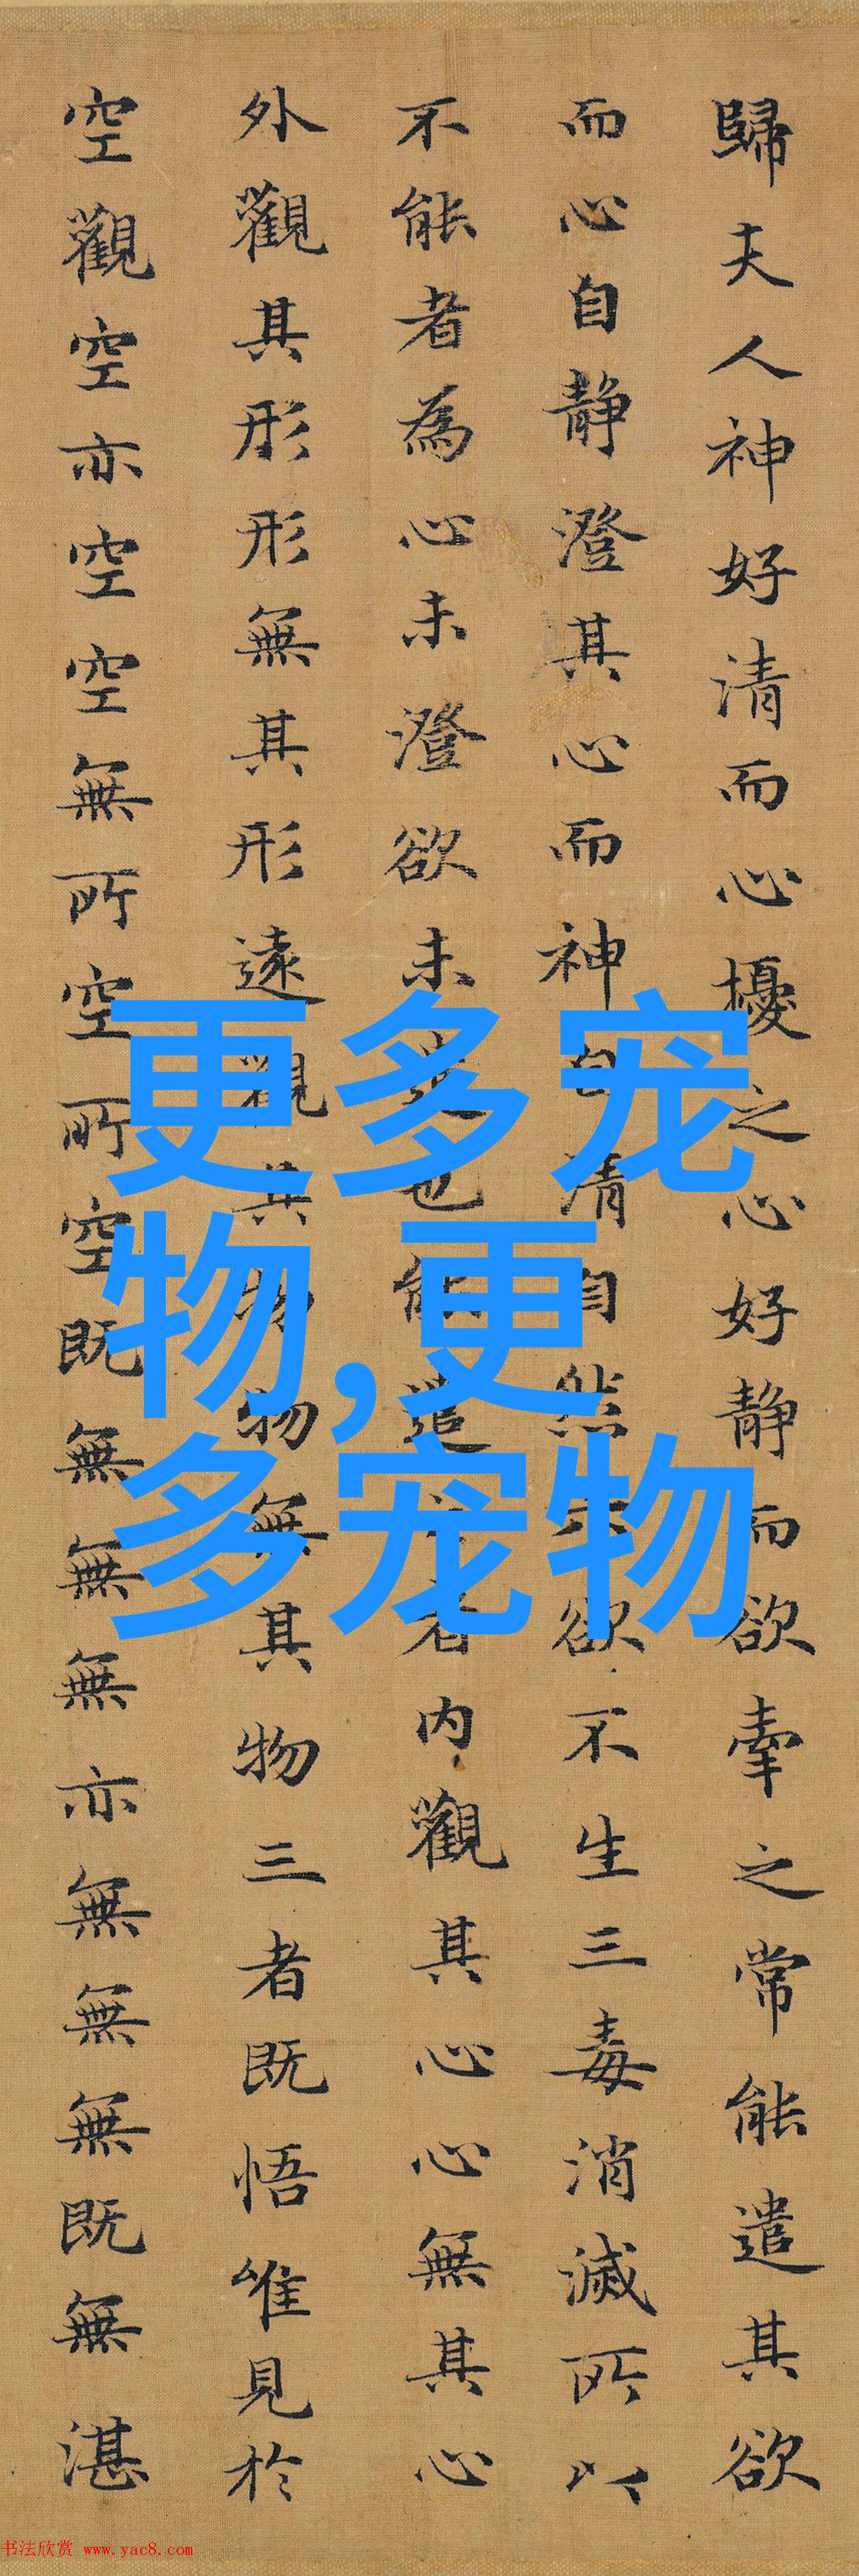 歸夫人神好清而心擾之心好静而欲牽之常能遣其欲
而心自静澄其心而神自清自然六欲不生三毒消滅所以
不能者為心未澄欲未遣也能遣之者内觀其心心無其心
外觀其形形無其形遠觀其物物無其物三者既悟唯見於
空觀空亦空空無所空所空既無無無亦無無無既無湛
更多宠
物,更
多宠物
书法欣赏 www.yac8.com